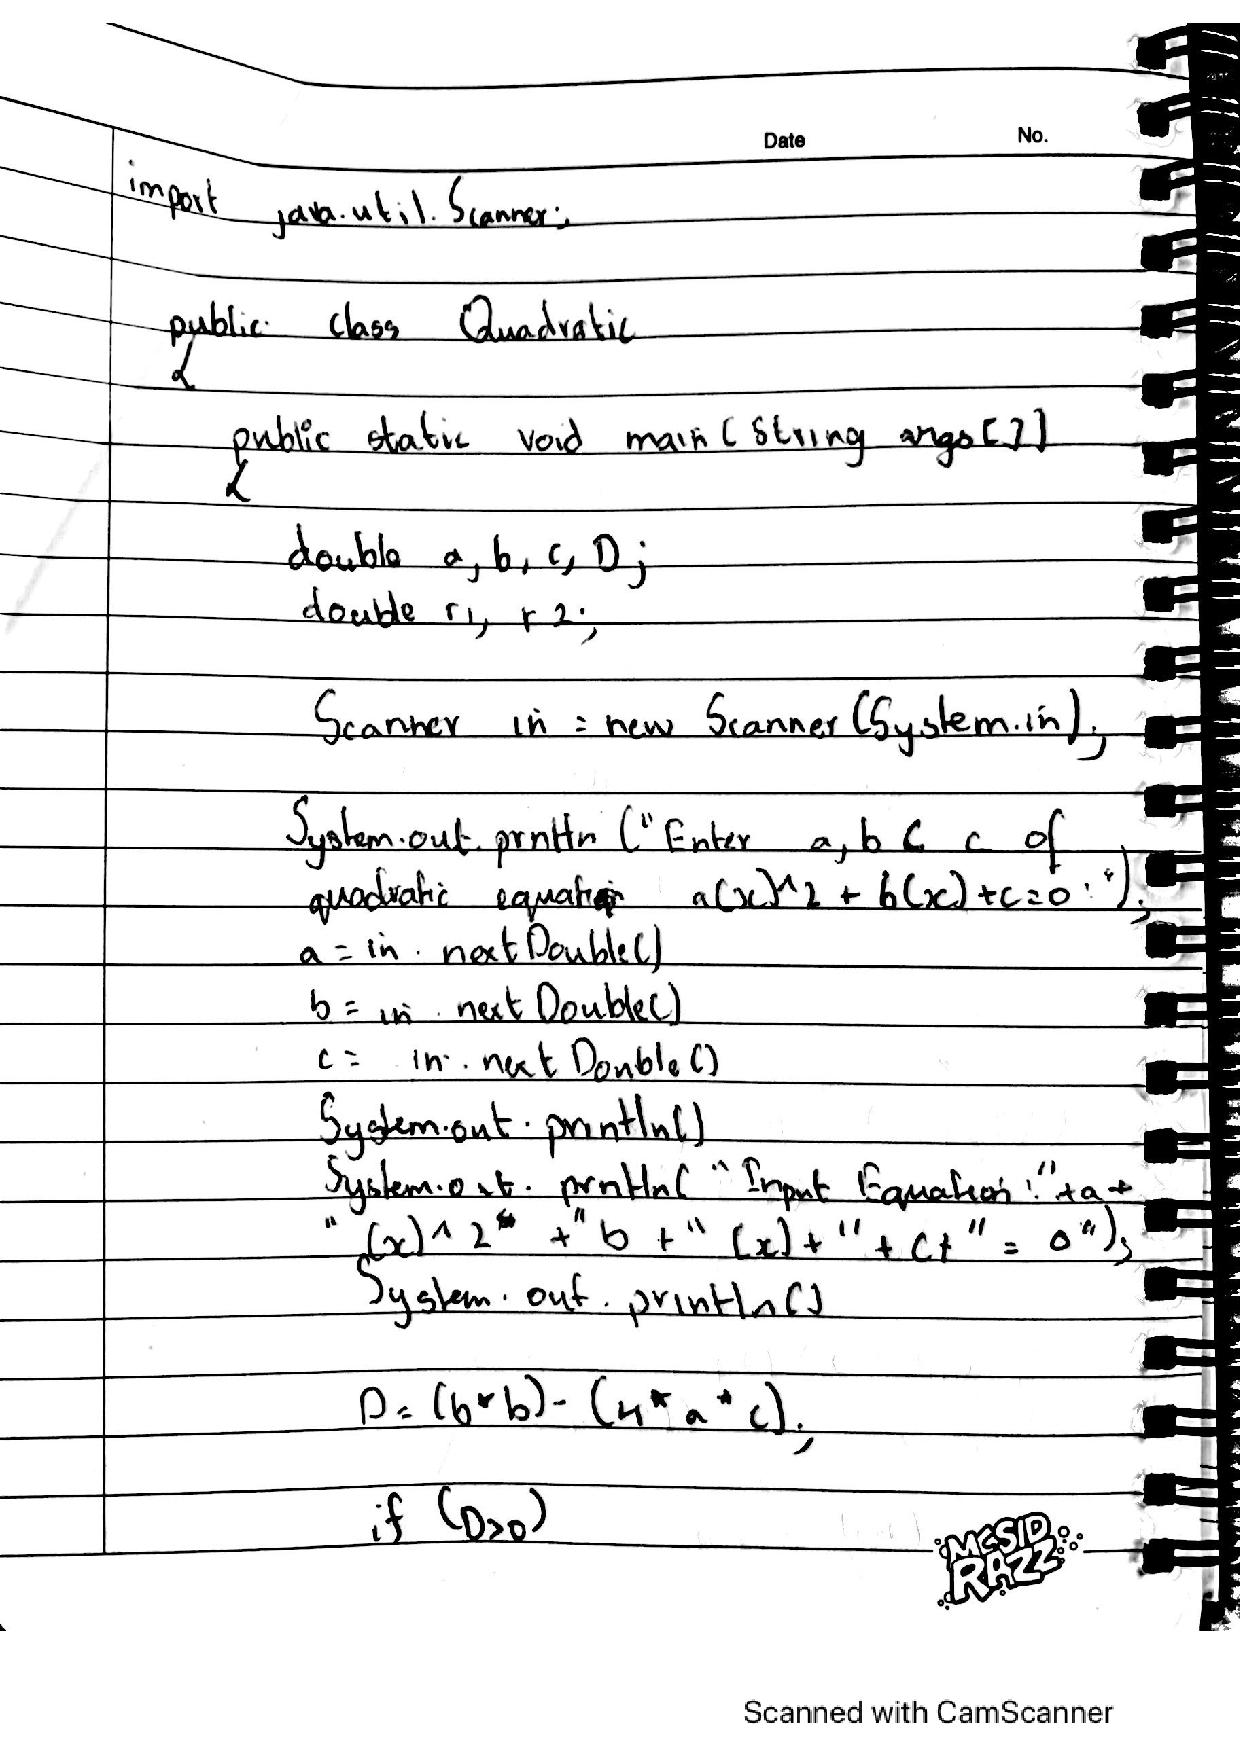 Date No.
import java.util.Scanner;
public class Quadratic
{
public static void main (String args[])
{
double a, b, c, D;
double r1, r2;
Scanner in = new Scanner (System.in);
System.out.println ("Enter a, b & c of
quadratic equation a(x)^2 + b(x)+c=0:");
a = in.nextDouble()
b = in.nextDouble()
c = in.nextDouble()
System.out.println()
System.out.println( "Input Equation:"+a+
"(x)^2" +"b +" (x)+" + c+" = 0");
System.out.println()
D = (b*b)-(4*a*c);
if (D>0)
MCSID
RAZZ
Scanned with CamScanner